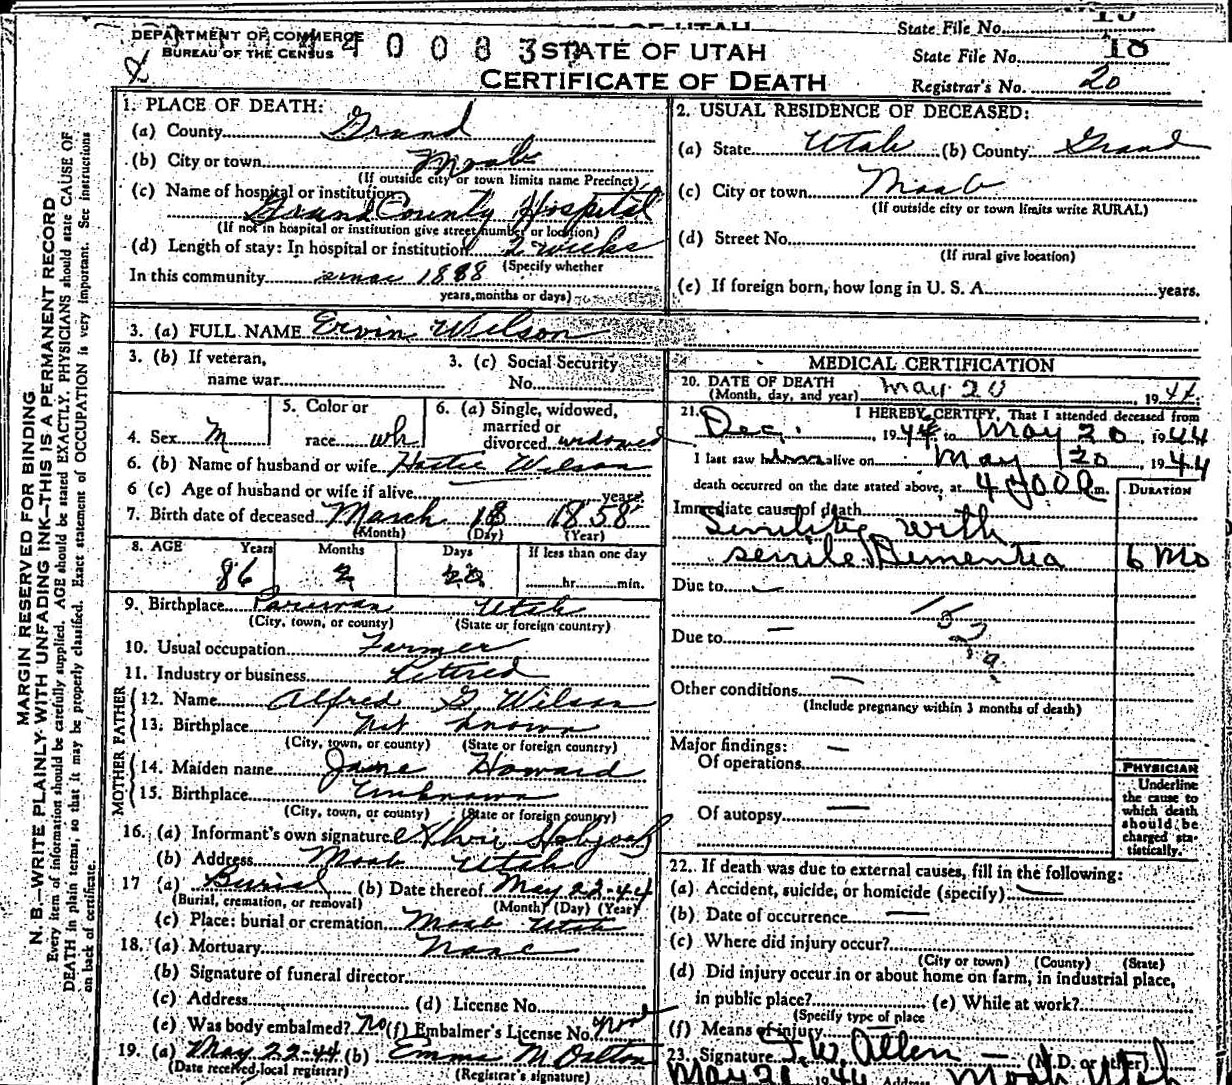 State File No.
DEPARTMENT OF COMMERCE
BUREAU OF THE CENSUS
STATE OF UTAH
State File No. 18
CERTIFICATE OF DEATH
Registrar's No. 20
1. PLACE OF DEATH:
(a) County Grand
(b) City or town Moab
(If outside city or town limits name Precinct)
(c) Name of hospital or institution
Grand County Hospital
(If not in hospital or institution give street number or location)
(d) Length of stay: In hospital or institution 2 weeks
(Specify whether
In this community since 1888
years, months or days)
2. USUAL RESIDENCE OF DECEASED:
(a) State Utah (b) County Grand
(c) City or town Moab
(If outside city or town limits write RURAL)
(d) Street No.
(If rural give location)
(e) If foreign born, how long in U. S. A. years.
3. (a) FULL NAME Ervin Wilson
3. (b) If veteran,
name war
3. (c) Social Security
No.
4. Sex M
5. Color or
race wh
6. (a) Single, widowed,
married or
divorced widowed
6. (b) Name of husband or wife Hattie Wilson
6 (c) Age of husband or wife if alive years
7. Birth date of deceased March 18 1858
(Month) (Day) (Year)
8. AGE Years Months Days If less than one day
86 2 hr. min.
9. Birthplace Parowan Utah
(City, town, or county) (State or foreign country)
10. Usual occupation Farmer
11. Industry or business Retired
FATHER
12. Name Alfred G. Wilson
13. Birthplace Not known
(City, town, or county) (State or foreign country)
MOTHER
14. Maiden name Jane Howard
15. Birthplace Unknown
(City, town, or county) (State or foreign country)
16. (a) Informant's own signature
(b) Address Moab Utah
17 (a) Burial (b) Date thereof May 22-44
(Burial, cremation, or removal) (Month) (Day) (Year)
(c) Place: burial or cremation Moab Utah
18. (a) Mortuary None
(b) Signature of funeral director
(c) Address (d) License No.
(e) Was body embalmed? No (f) Embalmer's License No.
19. (a) May 22-44 (b) Emma M Dalton
(Date received local registrar) (Registrar's signature)
MEDICAL CERTIFICATION
20. DATE OF DEATH May 20, 1944
(Month, day, and year)
21. I HEREBY CERTIFY, That I attended deceased from
Dec. 1944 to May 20 1944
I last saw him alive on May 20, 1944
death occurred on the date stated above, at m.
DURATION
Immediate cause of death
Senility with
senile Dementia 6 Mo
Due to
Due to
Other conditions
(Include pregnancy within 3 months of death)
Major findings:
Of operations
Of autopsy
PHYSICIAN
Underline
the cause to
which death
should be
charged sta-
tistically.
22. If death was due to external causes, fill in the following:
(a) Accident, suicide, or homicide (specify)
(b) Date of occurrence
(c) Where did injury occur?
(City or town) (County) (State)
(d) Did injury occur in or about home on farm, in industrial place,
in public place? (e) While at work?
(Specify type of place
(f) Means of injury
23. Signature J. W. Allen (M. D. or other)
1944 Address Moab Utah
MARGIN RESERVED FOR BINDING
N. B.—WRITE PLAINLY WITH UNFADING INK—THIS IS A PERMANENT RECORD
Every item of information should be carefully supplied. AGE should be stated EXACTLY. PHYSICIANS should state CAUSE OF
DEATH in plain terms, so that it may be properly classified. Exact statement of OCCUPATION is very important. See instructions
on back of certificate.